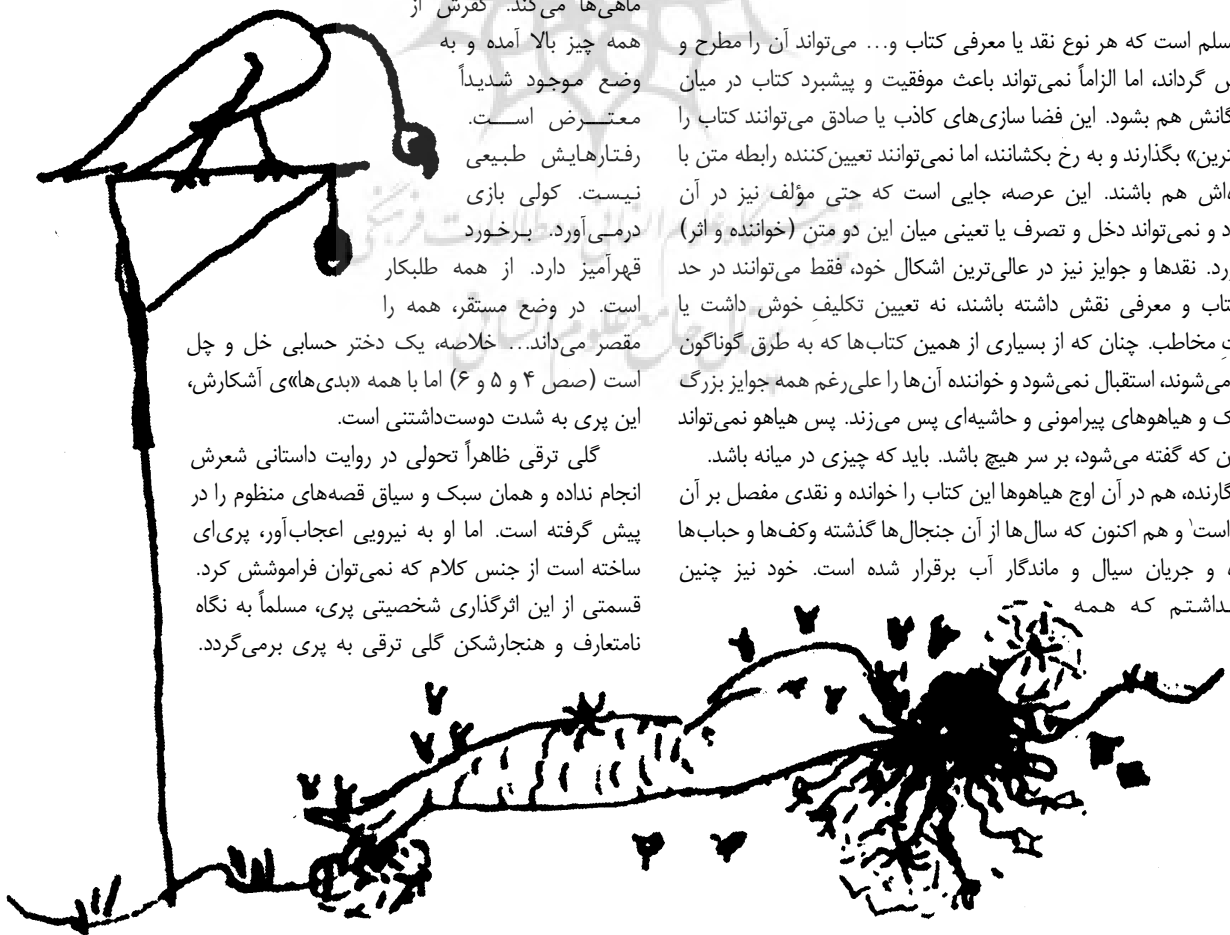 سلم است که هر نوع نقد یا معرفی کتاب و... می‌تواند آن را مطرح و
گرداند، اما الزاماً نمی‌تواند باعث موفقیت و پیشبرد کتاب در میان
گانش هم بشود. این فضا سازی‌های کاذب یا صادق می‌توانند کتاب را
ترین» بگذارند و به رخ بکشانند، اما نمی‌توانند تعیین‌کننده رابطه متن با
اش هم باشند. این عرصه، جایی است که حتی مؤلف نیز در آن
د و نمی‌تواند دخل و تصرف یا تعینی میان این دو متن (خواننده و اثر)
رد. نقدها و جوایز نیز در عالی‌ترین اشکال خود، فقط می‌توانند در حد
تاب و معرفی نقش داشته باشند، نه تعیین تکلیفِ خوش داشت یا
تِ مخاطب. چنان که از بسیاری از همین کتاب‌ها که به طرق گوناگون
می‌شوند، استقبال نمی‌شود و خواننده آن‌ها را علی‌رغم همه جوایز بزرگ
ک و هیاهوهای پیرامونی و حاشیه‌ای پس می‌زند. پس هیاهو نمی‌تواند
ن که گفته می‌شود، بر سر هیچ باشد. باید که چیزی در میانه باشد.
گارنده، هم در آن اوج هیاهوها این کتاب را خوانده و نقدی مفصل بر آن
است۱ و هم اکنون که سال‌ها از آن جنجال‌ها گذشته وکف‌ها و حباب‌ها
و جریان سیال و ماندگار آب برقرار شده است. خود نیز چنین
داشتم که همه
ماهی‌ها می‌کند. کفرش از
همه چیز بالا آمده و به
وضع موجود شدیداً
معترض است.
رفتارهایش طبیعی
نیست. کولی بازی
درمی‌آورد. برخورد
قهرآمیز دارد. از همه طلبکار
است. در وضع مستقر، همه را
مقصر می‌داند... خلاصه، یک دختر حسابی خل و چل
است (صص ۴ و ۵ و ۶) اما با همه «بدی‌ها»ی آشکارش،
این پری به شدت دوست‌داشتنی است.
گلی ترقی ظاهراً تحولی در روایت داستانی شعرش
انجام نداده و همان سبک و سیاق قصه‌های منظوم را در
پیش گرفته است. اما او به نیرویی اعجاب‌آور، پری‌ای
ساخته است از جنس کلام که نمی‌توان فراموشش کرد.
قسمتی از این اثرگذاری شخصیتی پری، مسلماً به نگاه
نامتعارف و هنجارشکن گلی ترقی به پری برمی‌گردد.
پژوهشگاه علوم انسانی و مطالعات فرهنگی
پرتال جامع علوم انسانی